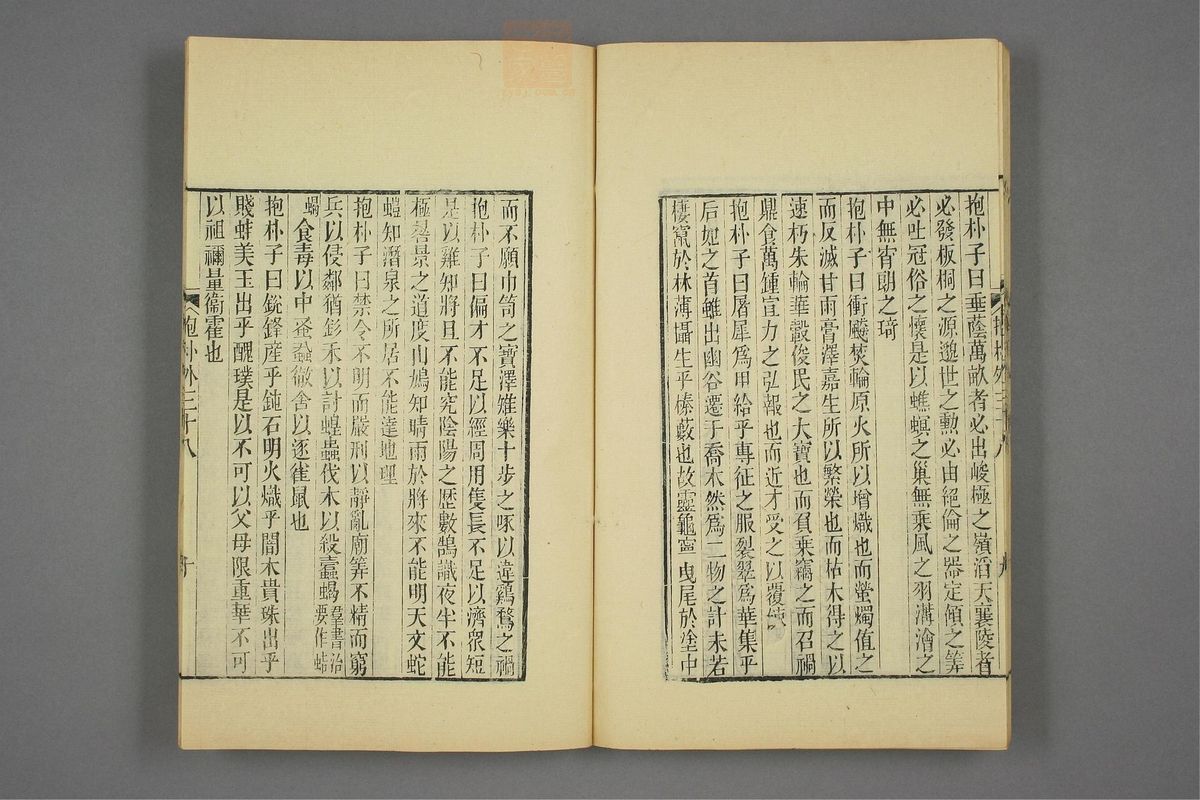 抱朴子曰垂蔭萬畝者必出峻極之嶺滔天襄陵者
必發板桐之源邈世之勳必由絕倫之器定傾之筭
必吐冠俗之懷是以蟭螟之巢無乘風之羽溝澮之
中無宵朗之琦
抱朴子曰衝飈焚輪原火所以增熾也而螢燭值之
而反滅甘雨膏澤嘉生所以繁榮也而枯木得之以
速朽朱輪華轂俊民之大寶也而負乘竊之而召禍
鼎食萬鍾宣力之弘報也而近才受之以覆餗
抱朴子曰屠犀爲甲給乎專征之服裂翠爲華集乎
后妃之首雖出幽谷遷于喬木然爲二物之計未若
棲竄於林薄攝生乎榛藪也故靈龜寧曳尾於塗中
而不願巾笥之寶澤雉樂十步之啄以違雞鶩之禍
抱朴子曰偏才不足以經周用隻長不足以濟衆短
是以雞知將旦不能究陰陽之歷數鵠識夜半不能
極晷景之道度山鳩知晴雨於將來不能明天文蛇
螘知潛泉之所居不能達地理
抱朴子曰禁令不明而嚴刑以靜亂廟筭不精而窮
兵以侵鄰猶釤禾以計蝗蟲伐木以殺蠹蝎羣書治要作蛣
蝎食毒以中蚤蝨徹舍以逐雀鼠也
抱朴子曰銳鋒産乎鈍石明火熾乎闇木貴珠出乎
賤蚌美玉出乎醜璞是以不可以父母限重華不可
以祖禰量衞霍也
抱朴外三十八
十